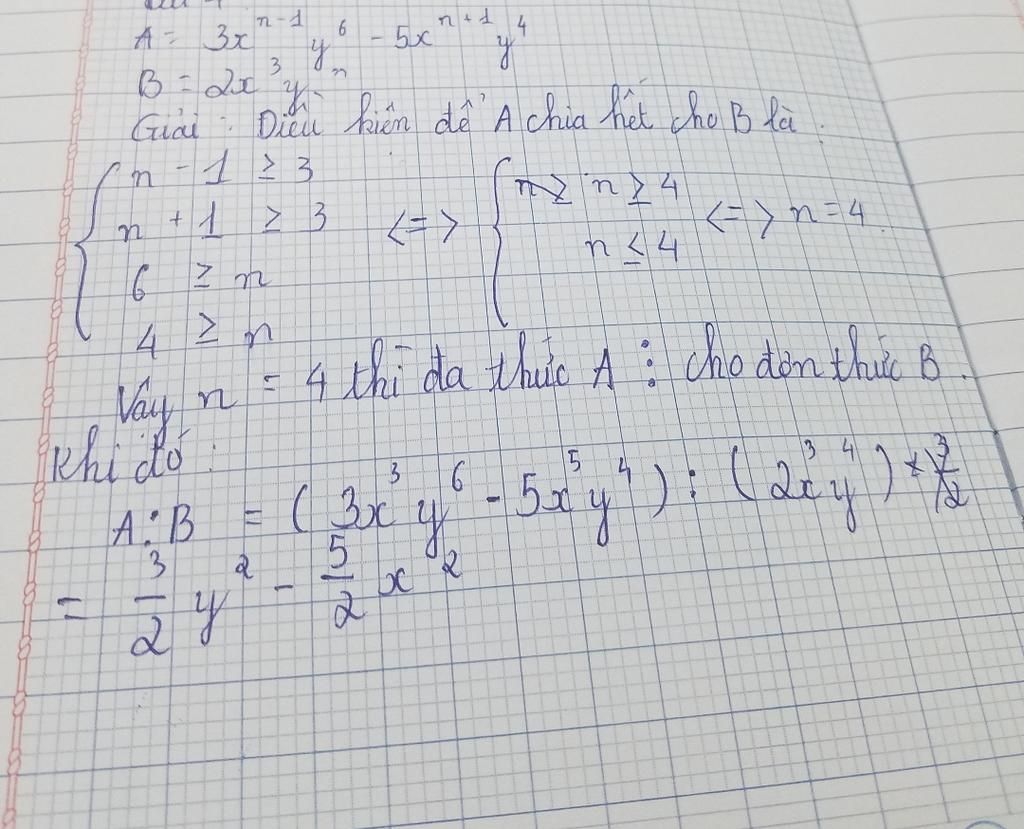 A = 3x^{n-1} y^6 - 5x^{n+1} y^4
B = 2x^3 y^n
Giải : Điều kiện để A chia hết cho B là :
{ n - 1 ≥ 3
n + 1 ≥ 3
6 ≥ n
4 ≥ n
<=> { n ≥ n ≥ 4
n ≤ 4
<=> n = 4
Vậy n = 4 thì đa thức A ⋮ cho đơn thức B.
Khi đó :
A : B = ( 3x^3 y^6 - 5x^5 y^4 ) : ( 2x^3 y^4 )
= \frac{3}{2} y^2 - \frac{5}{2} x^2